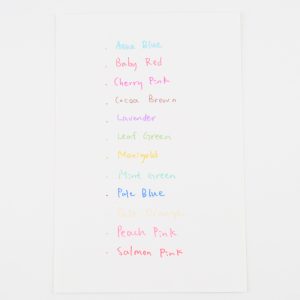 Aqua Blue
Baby Red
Cherry Pink
Cocoa Brown
Lavender
Leaf Green
Marigold
Mint Green
Pale Blue
Pale Orange
Peach Pink
Salmon Pink